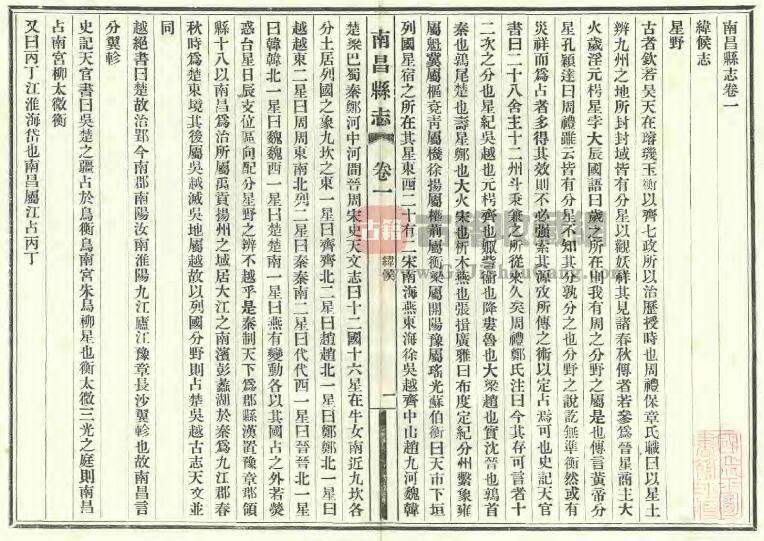 南昌縣志卷一
緯候志
星野
古者欽若昊天在璿璣玉衡以齊七政所以治歷授時也周禮保章氏職曰以星土
辨九州之地所封封域皆有分星以觀妖祥其見諸春秋傳者若參為晉星商主大
火歲淫元枵星孛大辰國語曰歲之所在則我有周之分野之屬是也傳言黃帝分
星孔穎達曰周禮雖云皆有分星不知其分孰分之也分野之說訖無準衡然或有
災祥而為占者多得其效則不必強索其源攷所傳之術以定占焉可也史記天官
書曰二十八舍主十二州斗秉兼之所從來久矣周禮鄭氏注曰今其存可言者十
二次之分也星紀吳越也元枵齊也娵訾衞也降婁魯也大梁趙也實沈晉也鶉首
秦也鶉尾楚也壽星鄭也大火宋也析木燕也張揖廣雅曰布度定紀分州繫象雍
屬魁冀屬樞兗青屬機徐揚屬權荊屬衡梁屬開陽豫屬瑤光蘇伯衡曰天市下垣
列國星宿之所在其星東西二十有二宋南海燕東海徐吳越齊中山趙九河魏韓
南昌縣志
卷一
緯候
一
楚梁巴蜀秦鄭河中河間晉周宋史天文志曰十二國十六星在牛女南近九坎各
分土居列國之象九坎之東一星曰齊齊北二星曰趙趙北一星曰鄭鄭北一星曰
越越東二星曰周周東南北列二星曰秦秦南二星曰代代西一星曰晉晉北一星
曰韓韓北一星曰魏魏西一星曰楚楚南一星曰燕有變動各以其國占之外若熒
惑台星日辰支位區向配分星野之辨不越乎是秦制天下為郡縣漢置豫章郡領
縣十八以南昌為治所屬禹貢揚州之域居大江之南濱彭蠡湖於秦為九江郡春
秋時為楚東境其後屬吳越滅吳地屬越故以列國分野則占楚吳越古志天文並
同
越絕書曰楚故治郢今南郡南陽汝南淮陽九江廬江豫章長沙翼軫也故南昌言
分翼軫
史記天官書曰吳楚之疆占於鳥衡鳥南宮朱鳥柳星也衡太微三光之庭則南昌
占南宮柳太微衡
又曰丙丁江淮海岱也南昌屬江占丙丁
古籍